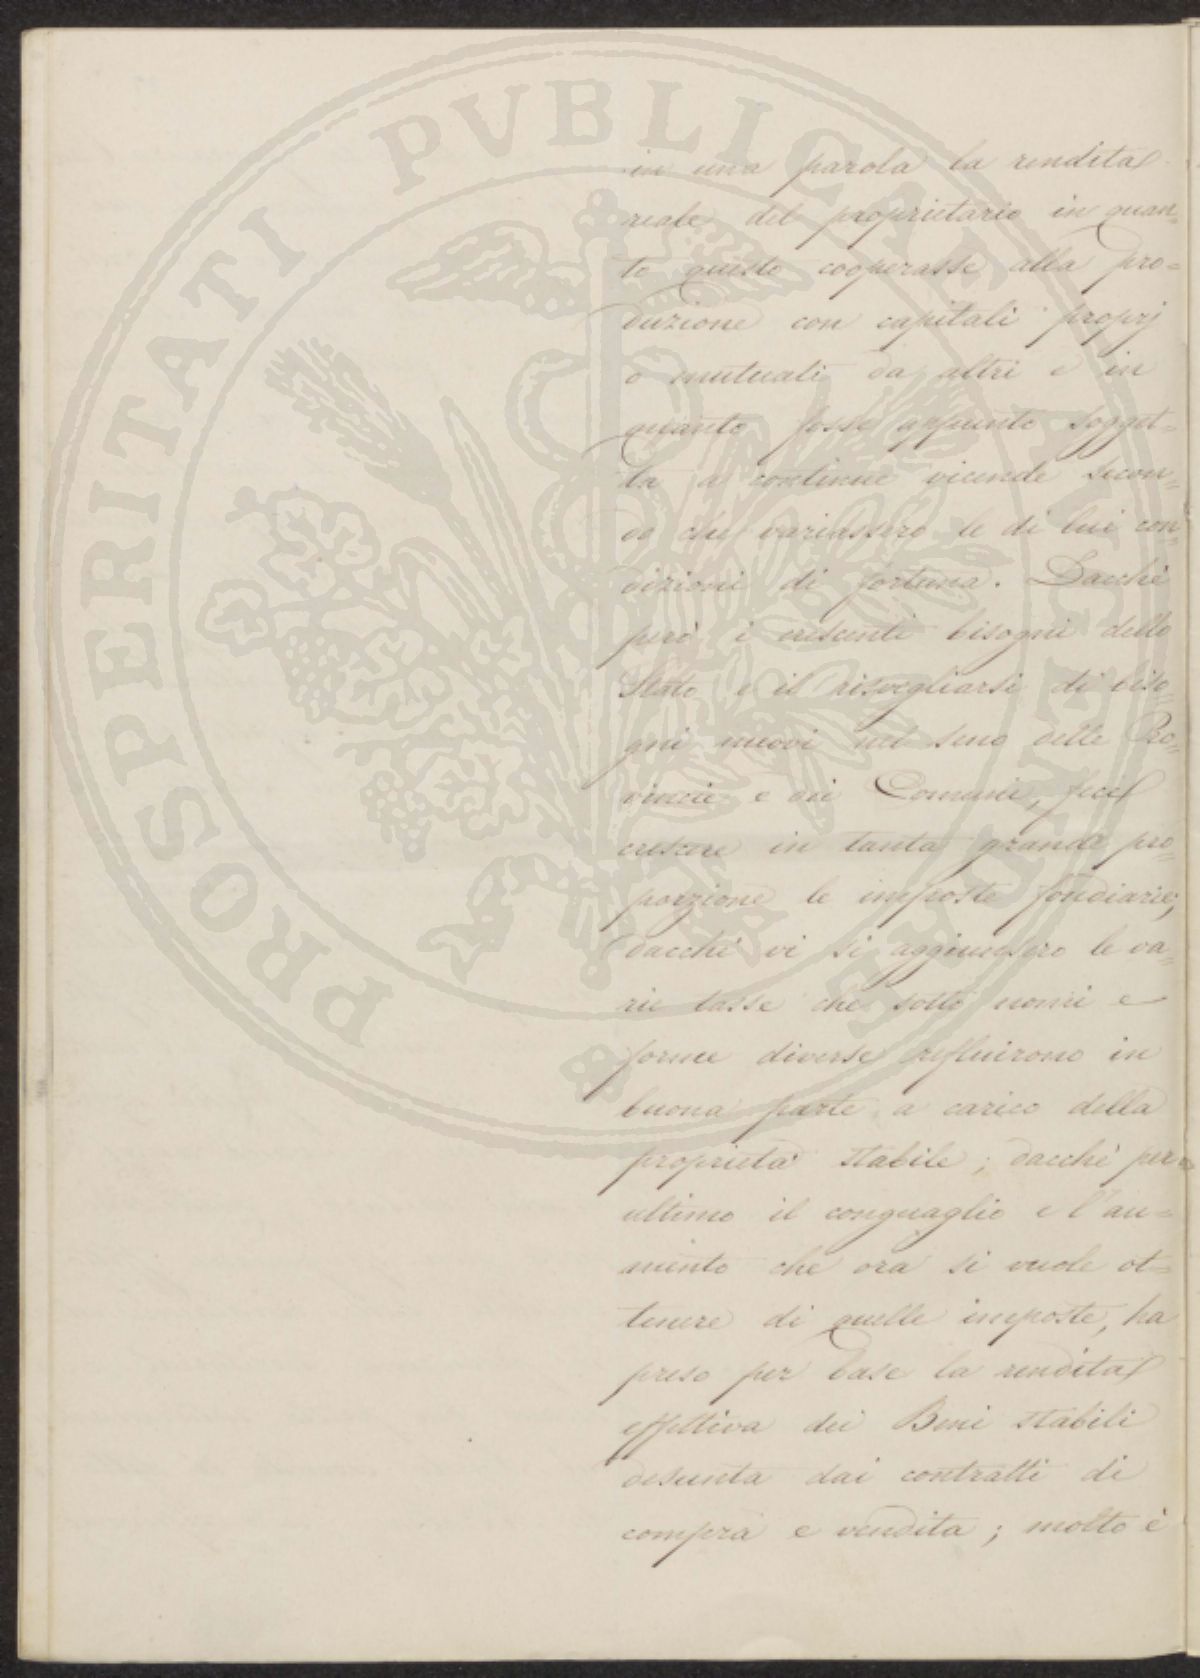 in una parola la rendita
reale del proprietario in quan=
to questo cooperasse alla pro=
duzione con capitali proprj
o mutuati da altri e in
quanto fosse appunto sogget=
ta a continue vicende secon=
do che variassero le di lui con=
dizioni di fortuna. Dacchè
però i crescenti bisogni dello
Stato e il risvegliarsi di biso=
gni nuovi nel seno delle Pro=
vincie e dei Comuni, fece
crescere in tanta grande pro=
porzione le imposte fondiarie;
dacchè vi si aggiunsero le va=
rie tasse che sotto nomi e
forme diverse refluirono in
buona parte a carico della
proprietà stabile; dacchè per
ultimo il conguaglio e l'au=
mento che ora si vuole ot=
tenere di quelle imposte, ha
preso per base la rendita
effettiva dei Beni stabili
desunta dai contratti di
compra e vendita; molto è
PROSPERITATI PVBLICAE AVGENDAE